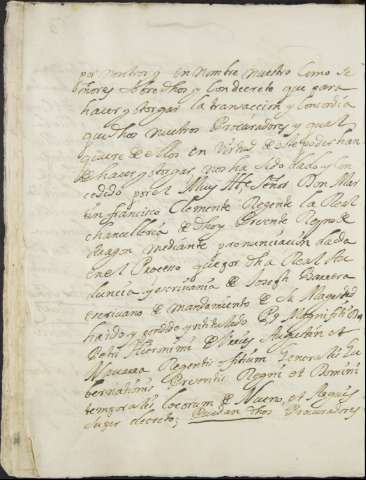 por nosotros y en nombre nuestro como Se
ñores sobre dhos y con decreto que para
hacer y otorgar la transaccion y Concordia
que dhos nuestros Procuradores y qual
quiere de ellos en Virtud de este poder han
de hacer y otorgar, nos ha sido dado y con
cedido por el Muy Ille Señor Don Mar
tin francisco Clemente Regente la Real
chancilleria de dho y Presente Reyno de
Aragon mediante pronunciacion dada
en el Proceso que por dha Real Au
diencia y escrivania de Joseph
escrivano de mandamiento de Su Magestad
ha sido y pendido y intitulado
Hieronimi de Augustin et
Regentis officium Generalis Gu
bernationis Presentis Regni et Domini
temporalis locorum de et
super decreto; Puedan dhos Procuradores